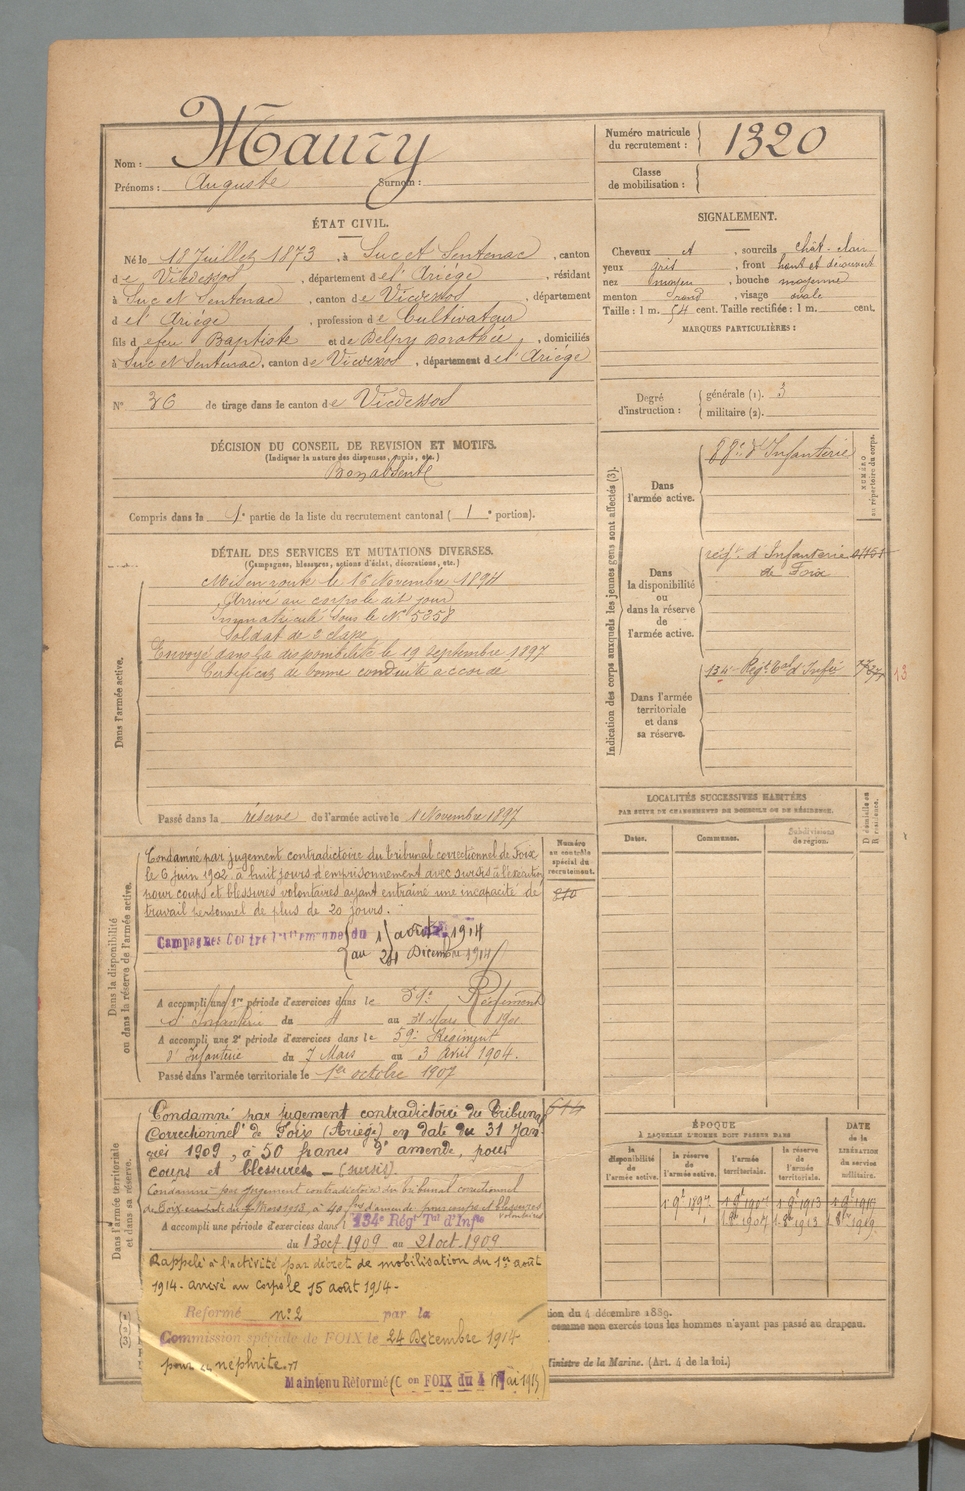 Nom : Maury
Prénoms : Auguste Surnom :
Numéro matricule du recrutement : 1320
Classe de mobilisation :
ÉTAT CIVIL.
Né le 18 Juillet 1873, à Suc et Sentenac, canton
de Vicdessos, département de l'Ariège, résidant
à Suc et Sentenac, canton de Vicdessos, département
d el' Ariège, profession de Cultivateur
fils d efeu Baptiste et de Delpy Dorothée, domiciliés
à Suc et Sentenac, canton de Vicdessos, département d el' Ariège
N° 26 de tirage dans le canton de Vicdessos
SIGNALEMENT.
Cheveux et, sourcils chât-clair
yeux gris, front haut et découvert
nez moyen, bouche moyenne
menton rond, visage ovale
Taille : 1 m. 54 cent. Taille rectifiée : 1 m. cent.
MARQUES PARTICULIÈRES :
Degré d'instruction : générale (1). 3
militaire (2).
DÉCISION DU CONSEIL DE REVISION ET MOTIFS.
(Indiquer la nature des dispenses, sursis, etc.)
Bon absent
Compris dans la 1e partie de la liste du recrutement cantonal (1e portion).
DÉTAIL DES SERVICES ET MUTATIONS DIVERSES.
(Campagnes, blessures, actions d'éclat, décorations, etc.)
Dans l'armée active.
Mis en route le 16 Novembre 1894
Arrivé au corps le dit jour
Immatriculé sous le N° 5258
Soldat de 2 classe
Envoyé dans la disponibilité le 19 Septembre 1897
Certificat de bonne conduite accordé
Passé dans la réserve de l'armée active le 1 Novembre 1897
Indication des corps auxquels les jeunes gens sont affectés (3).
NUMÉRO au répertoire du corps.
Dans l'armée active.
88e d'Infanterie
Dans la disponibilité ou dans la réserve de l'armée active.
régt. d'Infanterie
de Foix
Dans l'armée territoriale et dans sa réserve.
134e Régt Tal d'Infie
13
LOCALITÉS SUCCESSIVES HABITÉES
PAR SUITE DE CHANGEMENTS DE DOMICILE OU DE RÉSIDENCE.
Dates. Communes. Subdivisions de région. D domicile ou R résidence.
Dans la disponibilité ou dans la réserve de l'armée active.
Numéro au contrôle spécial du recrutement.
Condamné par jugement contradictoire du tribunal correctionnel de Foix
le 6 juin 1902 à huit jours d'emprisonnement avec sursis à l'exécution
pour coups et blessures volontaires ayant entraîné une incapacité de
travail personnel de plus de 20 jours.
Campagnes Contre l'allemagne du 1 août 1914
au 24 Décembre 1914
A accompli une 1re période d'exercices dans le 59e Régiment
d'Infanterie du 4 au 31 Mars 1901
A accompli une 2e période d'exercices dans le 59e Régiment
d'Infanterie du 7 Mars au 3 Avril 1904.
Passé dans l'armée territoriale le 1er octobre 1907
Dans l'armée territoriale et dans sa réserve.
Condamné par jugement contradictoire du Tribunal
Correctionnel de Foix (Ariège) en date du 31 Jan-
vier 1909, à 50 francs d'amende, pour
coups et blessures – (sursis).
Condamné par jugement contradictoire du tribunal correctionnel
de Foix en date du Mars 1913, à 40 frs d'amende pour coups et blessures
volontaires
A accompli une période d'exercices dans l 134e Régt Tal d'Infie
du 13 oct 1909 au 21 oct. 1909.
ÉPOQUE
À LAQUELLE L'HOMME DOIT PASSER DANS
DATE de la LIBÉRATION du service militaire.
la disponibilité de l'armée active. la réserve de l'armée active. l'armée territoriale. la réserve de l'armée territoriale.
1 9bre 1897 1 9bre 1907 1 9bre 1913
1 8bre 1907 1 8bre 1913 1 8bre 1919
Rappelé à l'activité par décret de mobilisation du 1er août
1914 - arrivé au corps le 15 août 1914 -
Reformé n° 2 par la
Commission spéciale de FOIX le 24 Décembre 1914
pour "néphrite."
Maintenu Réformé (Con FOIX du 4 Mai 1915
tion du 4 décembre 1889.
comme non exercés tous les hommes n'ayant pas passé au drapeau.
Ministre de la Marine. (Art. 4 de la loi.)